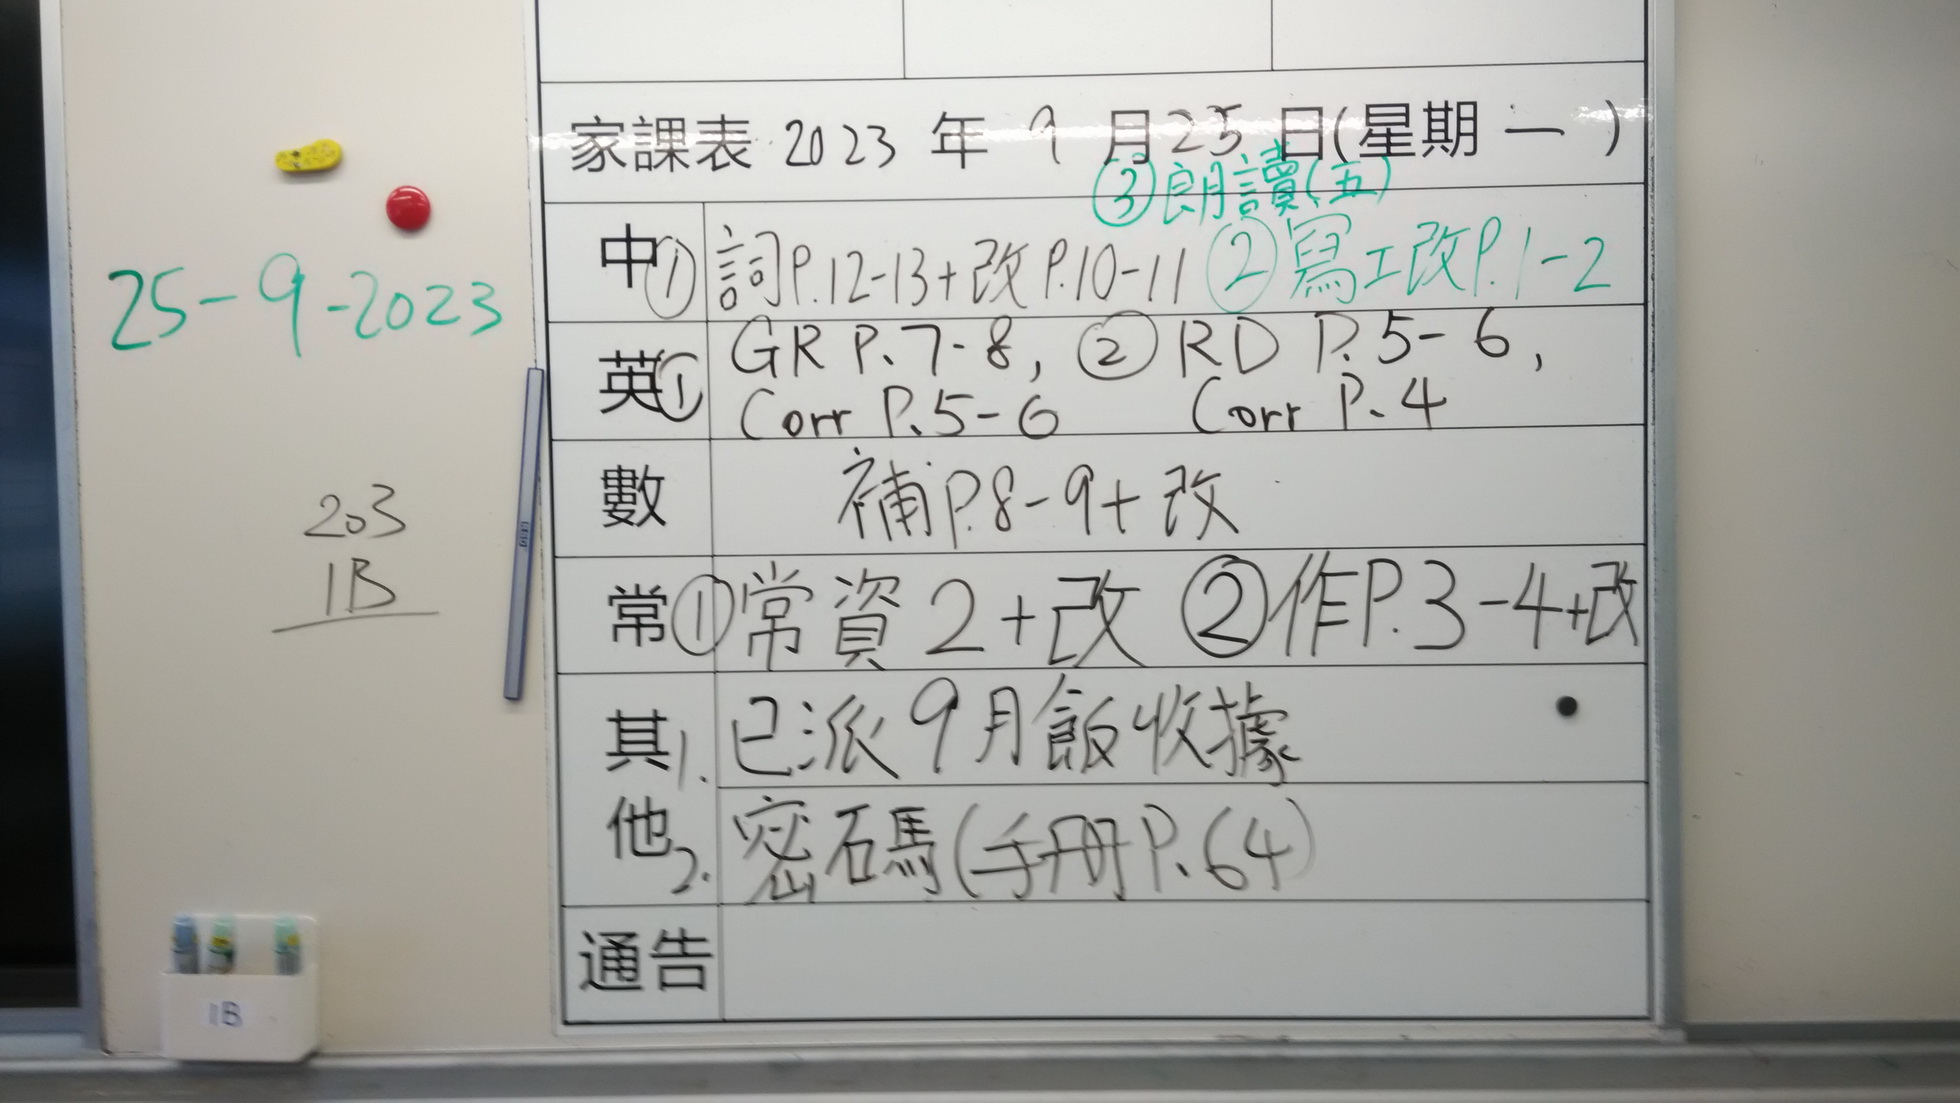 家課表 2023 年 9 月 25 日(星期 一 )
③朗讀(五)
中① 詞P.12-13+改P.10-11 ②寫工改P.1-2
英① GR P.7-8, ② RD P.5-6,
Corr P.5-6 Corr P.4
數 補P.8-9+改
常①常資2+改 ②作P.3-4+改
其他
1. 已派9月飯收據
2. 密碼(手冊P.64)
通告
25-9-2023
203
1B
1B